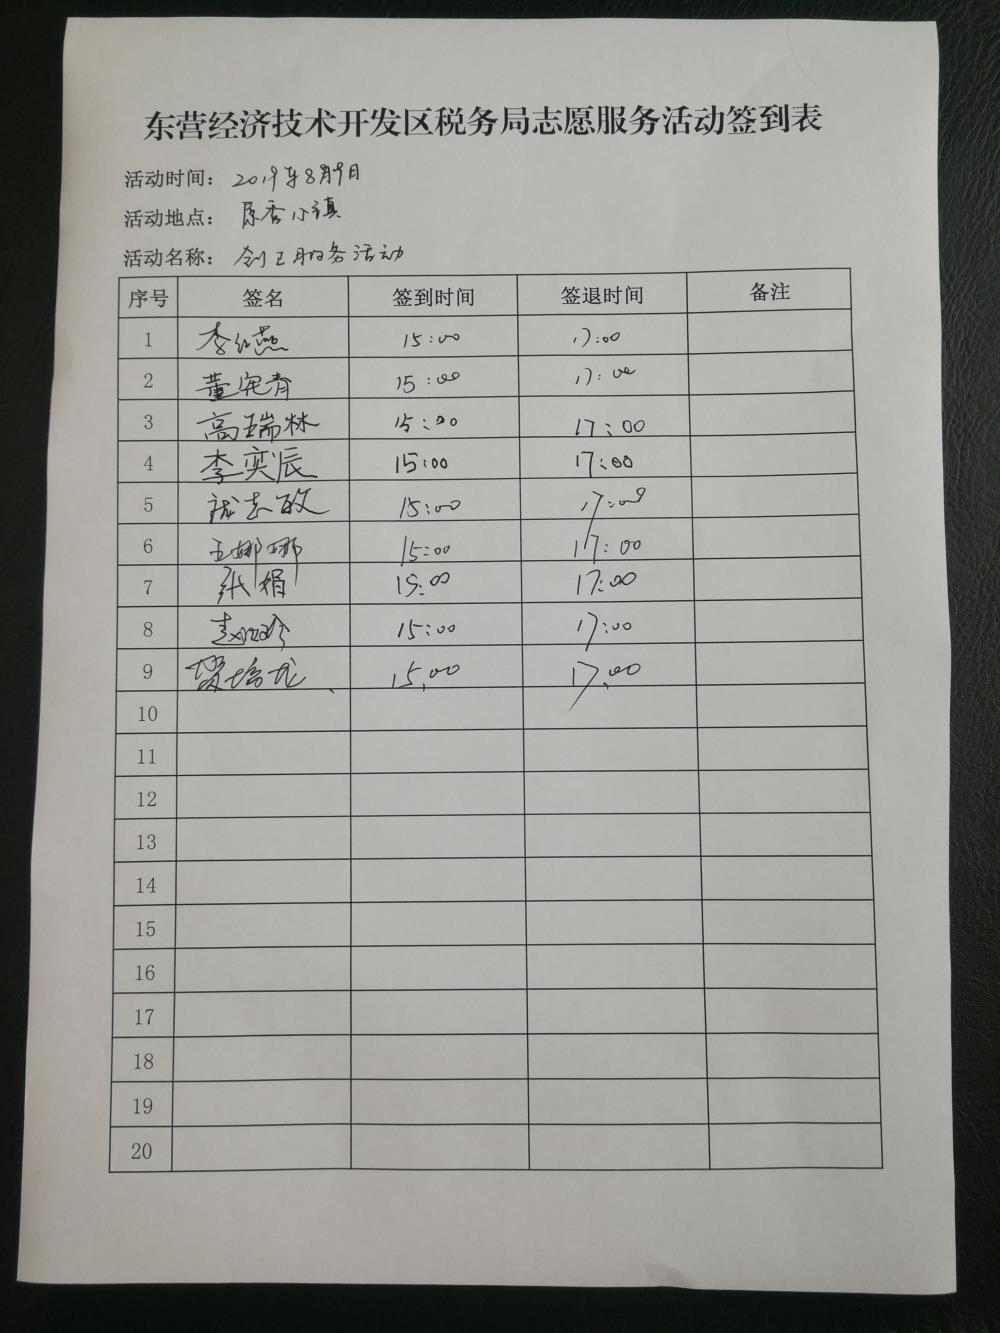 东营经济技术开发区税务局志愿服务活动签到表
活动时间： 2019年8月9日
活动地点： 原香小镇
活动名称： 创卫服务活动
序号 签名 签到时间 签退时间 备注
1 李红燕 15:00 17:00
2 董宪青 15:00 17:00
3 高瑞林 15:00 17:00
4 李奕辰 15:00 17:00
5 志敏 15:00 17:00
6 王娜娜 15:00 17:00
7 张娟 15:00 17:00
8 赵 15:00 17:00
9 培龙 15,00 17,00
10
11
12
13
14
15
16
17
18
19
20